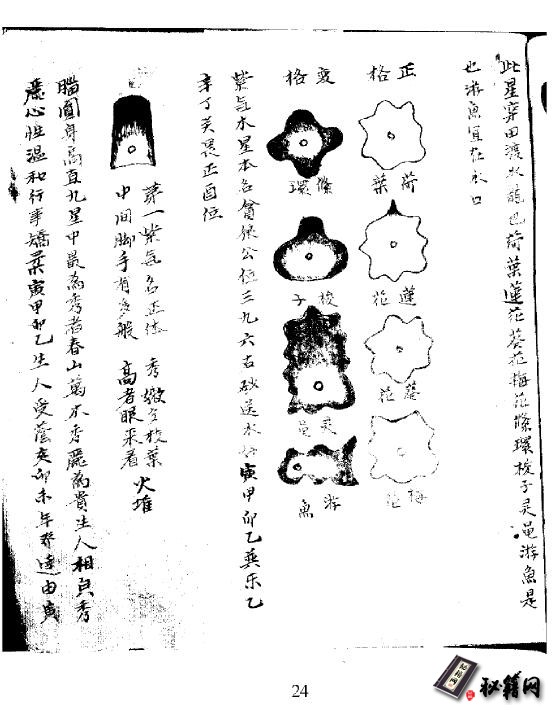 此星穿田渡水龍也荷葉蓮花葵花梅花絛環梭子灵黾游魚是
也游魚宜在水口
正格
荷葉
蓮花
葵花
梅花
变格
絛環
梭子
灵黾
游魚
紫气木星本名會公位三九六古砂送水好寅甲卯乙葬乐乙
辛丁畏正酉位
第一紫氣名正体 秀嫩多枝葉
中间脚手有多般 高者眼来看
火堆
腦圓身高直九星中最為秀者春山萬木秀麗為貴生人相貞秀
麗心性温和行事矯柔寅甲卯乙生人受蔭亥卯未年發達由寅
24
秘籍网